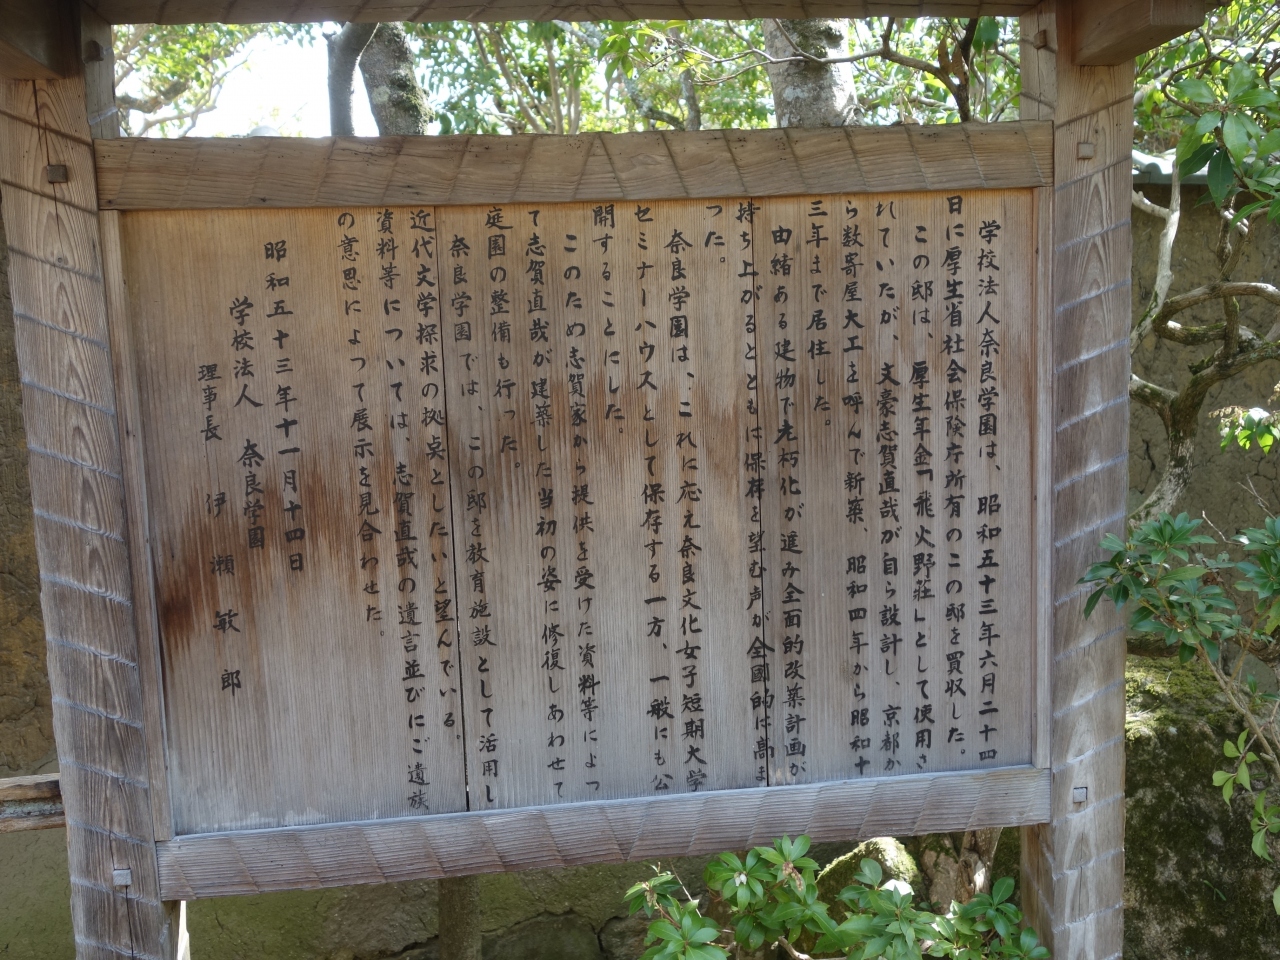 学校法人奈良学園は、昭和五十三年六月二十四
日に厚生省社会保険庁所有のこの邸を買収した。
この邸は、厚生年金「飛火野荘」として使用さ
れていたが、文豪志賀直哉が自ら設計し、京都か
ら数寄屋大工を呼んで新築、昭和四年から昭和十
三年まで居住した。
由緒ある建物で老朽化が進み全面的改築計画が
持ち上がるとともに保存を望む声が全国的に高ま
った。
奈良学園は、これに応え奈良文化女子短期大学
セミナーハウスとして保存する一方、一般にも公
開することにした。
このため志賀家から提供を受けた資料等によっ
て志賀直哉が建築した当初の姿に修復しあわせて
庭園の整備も行った。
奈良学園では、この邸を教育施設として活用し
近代文学探求の拠点としたいと望んでいる。
資料等については、志賀直哉の遺言並びにご遺族
の意思によって展示を見合わせた。
昭和五十三年十一月十四日
学校法人 奈良学園
理事長 伊瀬敏郎